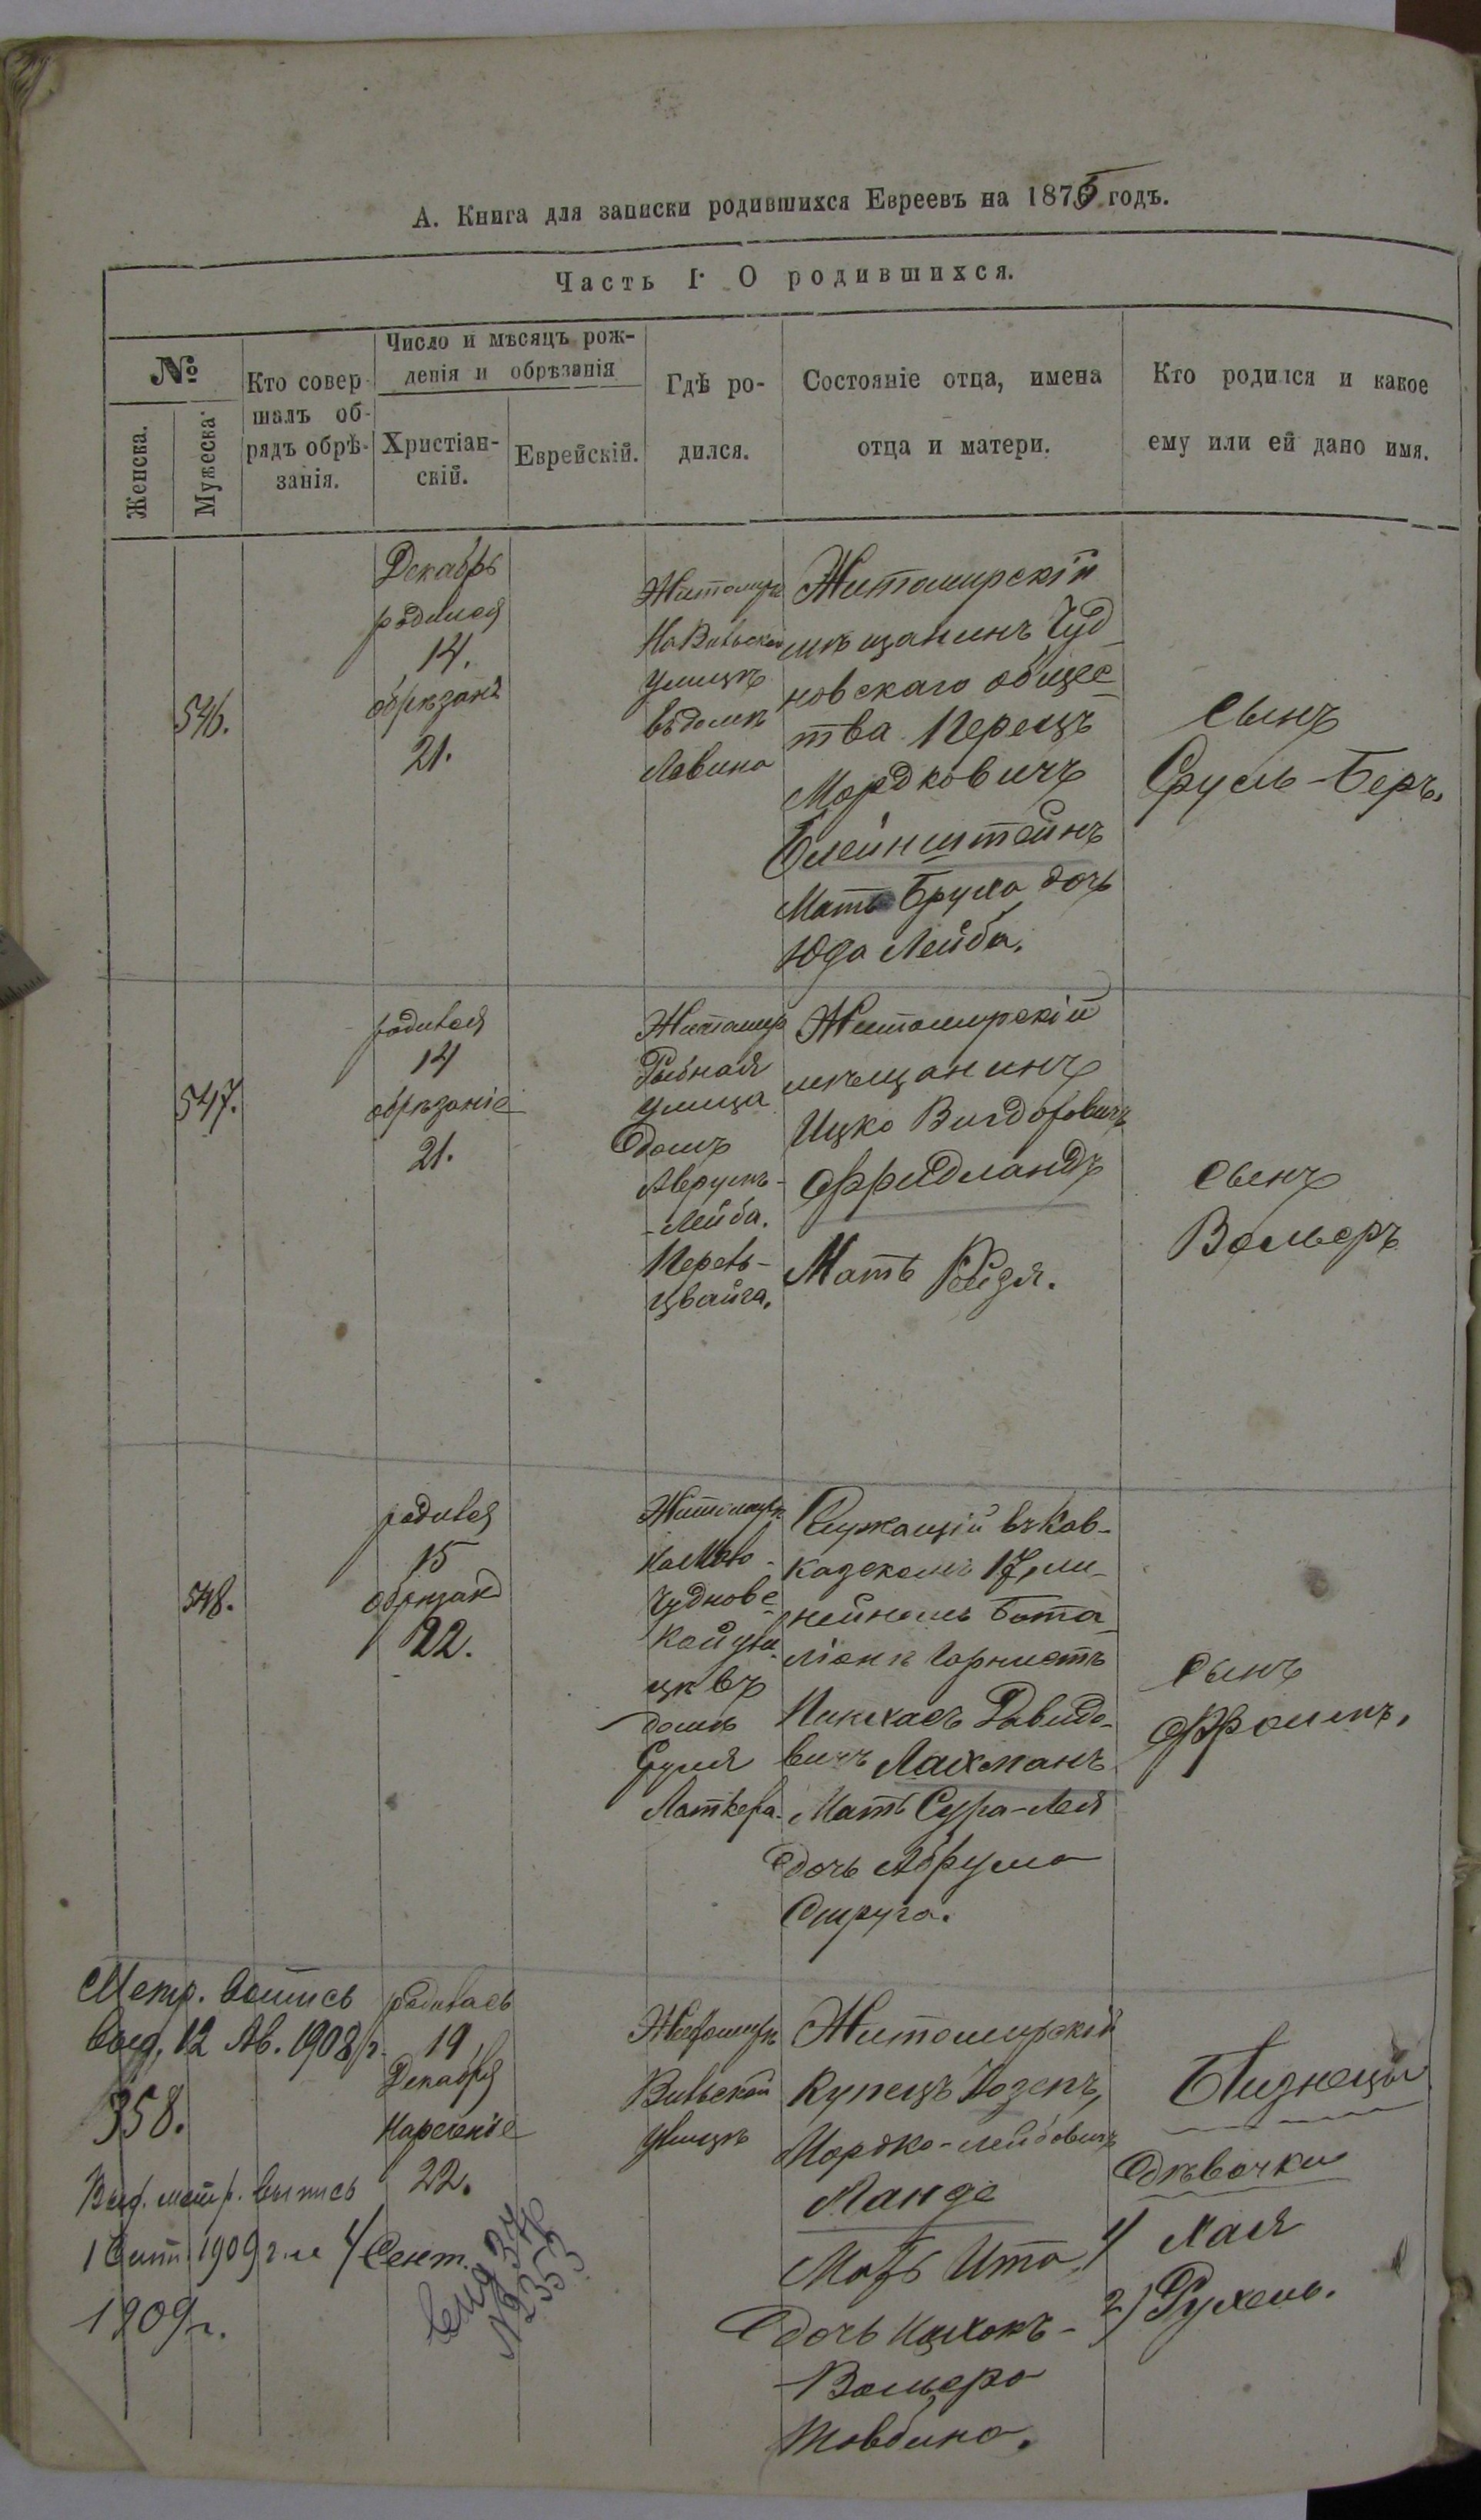 А. Книга для записки родившихся Евреевъ на 1875 годъ.
Часть I. О родившихся.
№
Женска.
Мужеска.
Кто совер-
шалъ об-
рядъ обрѣ-
занія.
Число и мѣсяцъ рож-
денія и обрѣзанія
Христіан-
скій.
Еврейскій.
Гдѣ ро-
дился.
Состояніе отца, имена
отца и матери.
Кто родился и какое
ему или ей дано имя.
546.
Декабрь
родился
14.
обрѣзанъ
21.
Житомиръ
На Вильской
улицѣ
въ домѣ
Лавина
Житомирскій
мѣщанинъ Чуд
новскаго общес
тва Перецъ
Мордковичъ
Блейнштейнъ
Мать Бруха дочь
Юда Лейба.
Сынъ
Сруль-Беръ.
547.
родился
14
обрѣзаніе
21.
Житомир
Рыбная
улица
домъ
Аврумъ-
-Лейба.
Перель-
цвайга.
Житомирскій
мѣщанинъ
Ицко Вигдоровичъ
Фридландъ
Мать Рейзя.
Сынъ
Вольеръ
548.
родился
15
обрѣзанъ
22.
Житомиръ
на Мало-
Чуднов-
кой ули-
цѣ въ
домѣ
Сруля
Латкера.
Служащій въ Кав-
казскомъ 17, ли-
нейномъ Бата-
ліонѣ Горнистъ
Пинхасъ Давидо-
вичъ Лахманъ
Мать Сура-Лея
дочь Абрума
Струга.
Сынъ
Фроимъ.
Метр. выпись
выд. 12 Ав. 1908 г.
358.
Выд. метр. выпись
1 Сент. 1909 г. и 4 Сент.
1909 г.
родилась
19
Декабря
Нареченіе
22.
Житомиръ
Вильской
улицѣ
Житомирскій
Купецъ Іозепъ,
Мордко-Лейбовичъ
Ланде
Мать Ита,
дочь Ицхокъ-
Вольера
Товбина.
Близнецы
дѣвочки
1) Хая
2) Рухель.